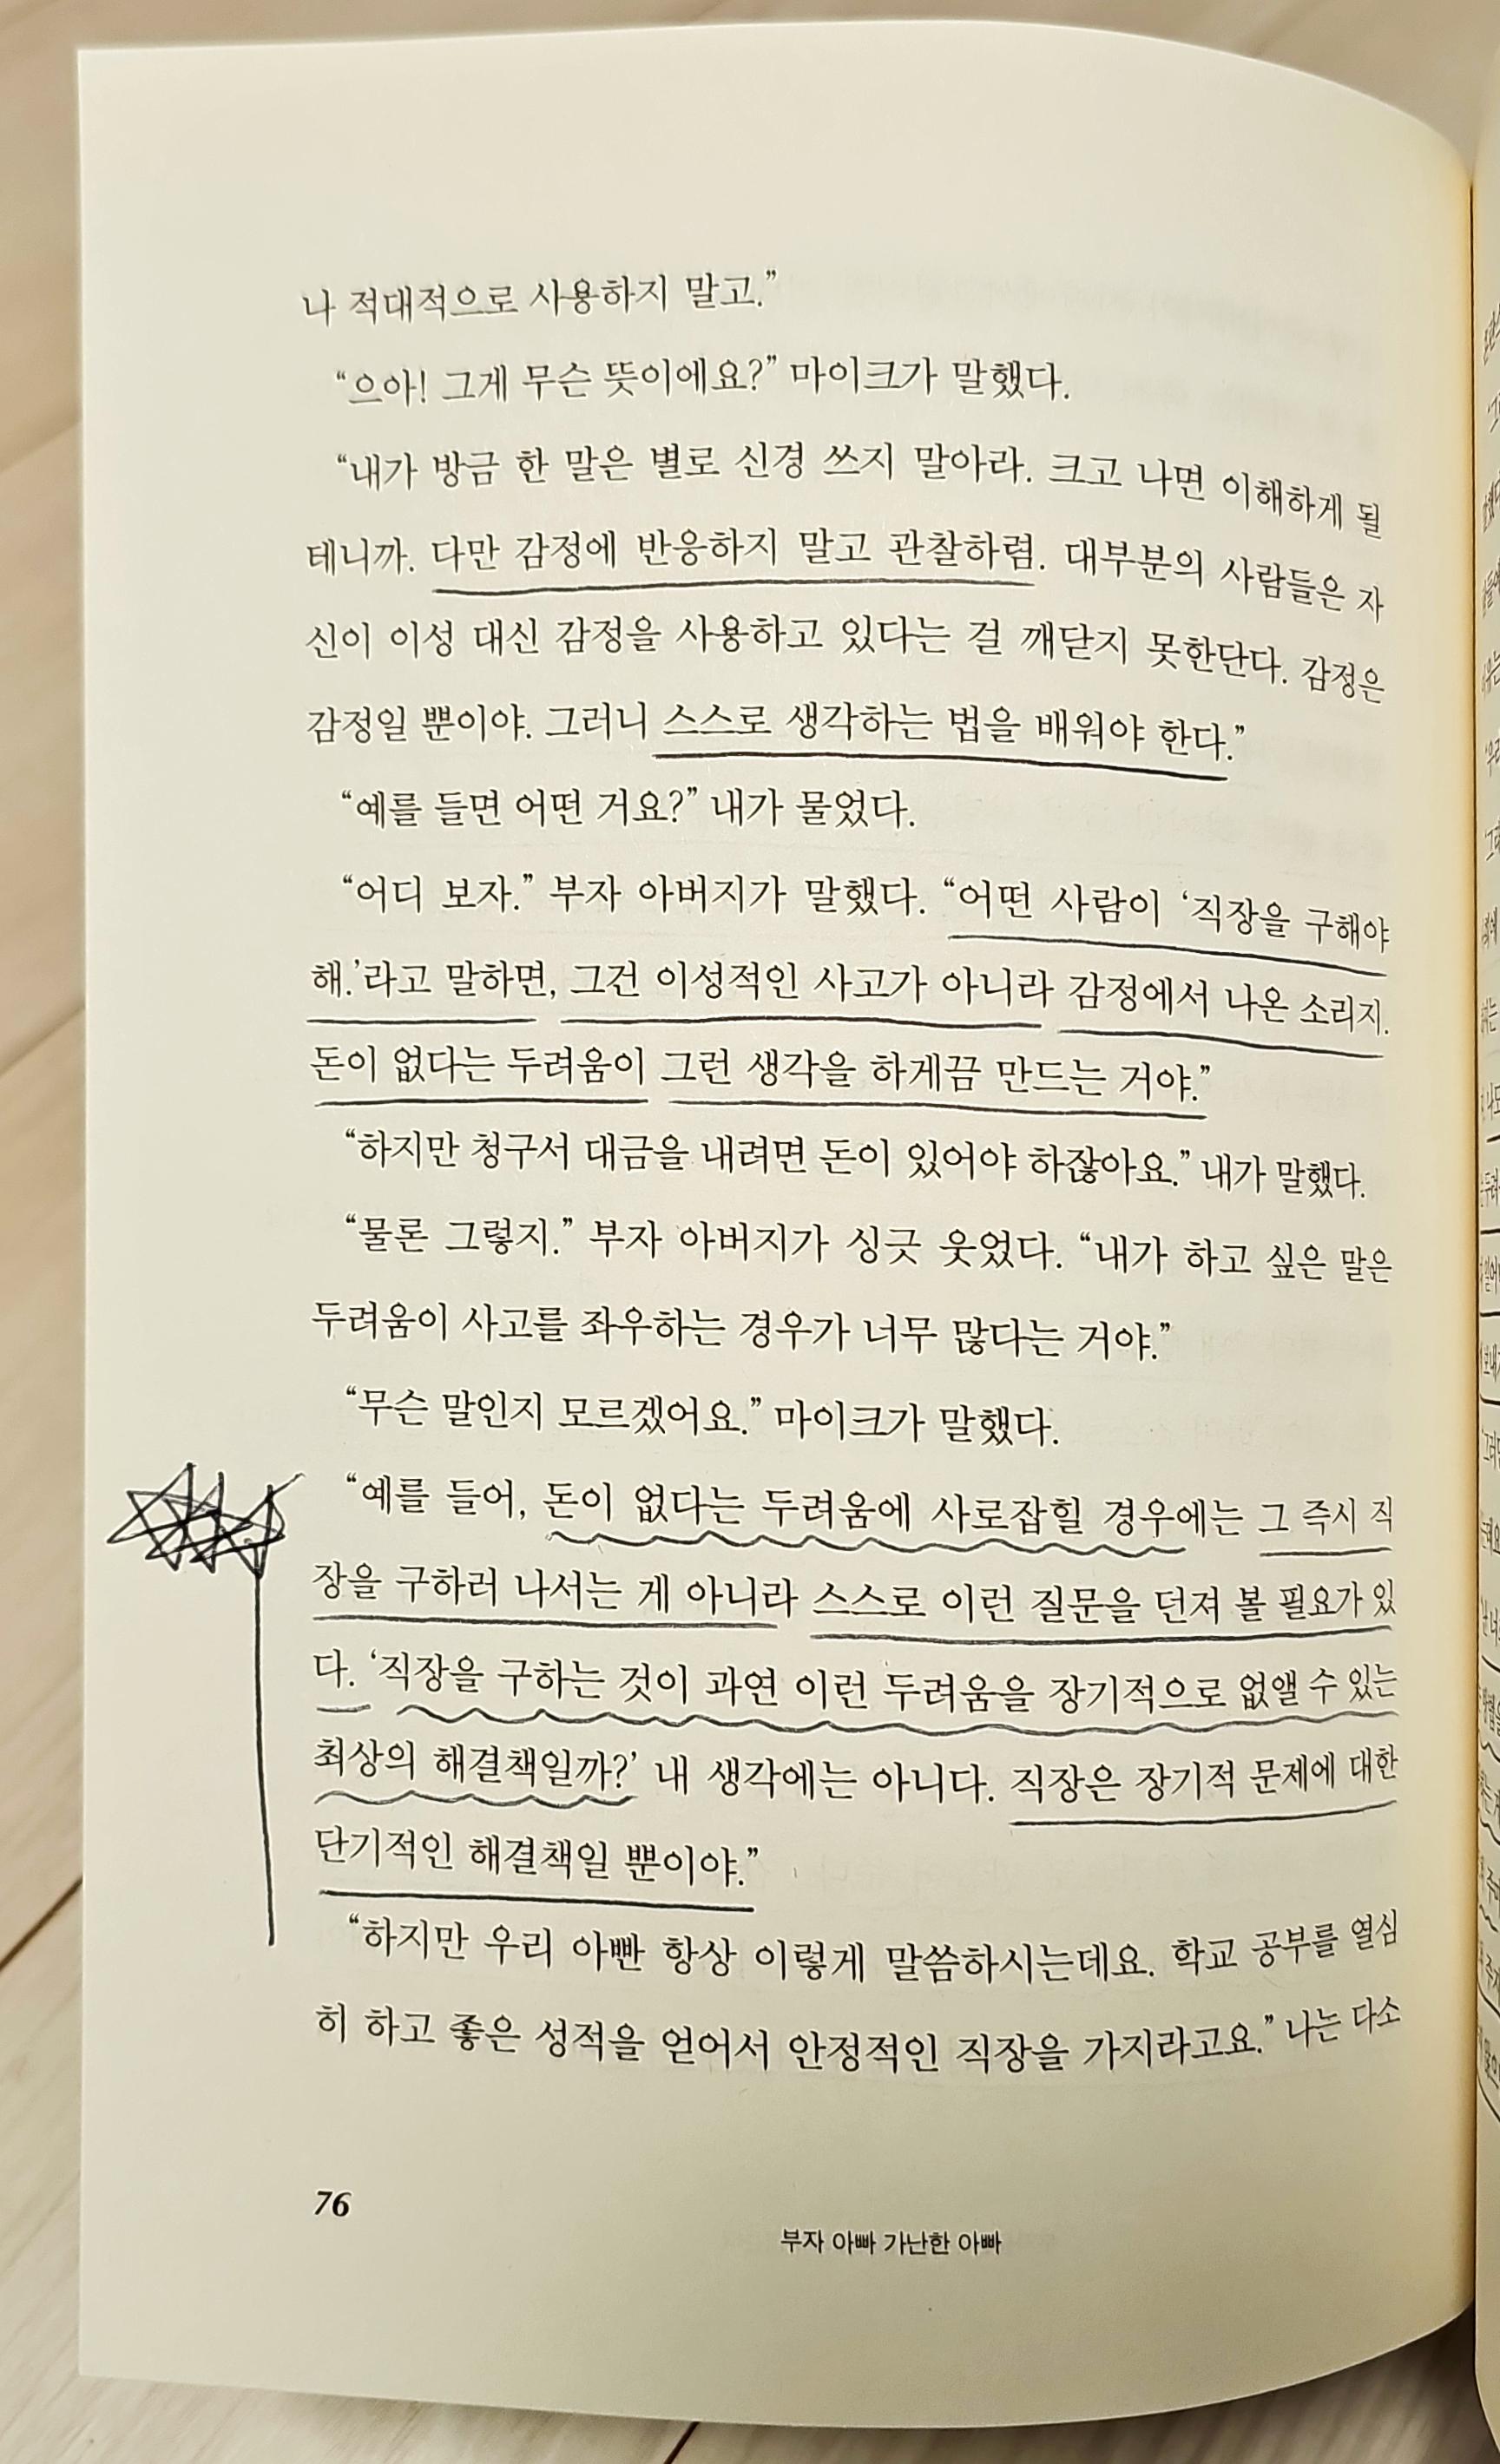 나 적대적으로 사용하지 말고.”
“으아! 그게 무슨 뜻이에요?” 마이크가 말했다.
“내가 방금 한 말은 별로 신경 쓰지 말아라. 크고 나면 이해하게 될
테니까. 다만 감정에 반응하지 말고 관찰하렴. 대부분의 사람들은 자
신이 이성 대신 감정을 사용하고 있다는 걸 깨닫지 못한단다. 감정은
감정일 뿐이야. 그러니 스스로 생각하는 법을 배워야 한다.”
“예를 들면 어떤 거요?” 내가 물었다.
“어디 보자.” 부자 아버지가 말했다. “어떤 사람이 ‘직장을 구해야
해.’라고 말하면, 그건 이성적인 사고가 아니라 감정에서 나온 소리지.
돈이 없다는 두려움이 그런 생각을 하게끔 만드는 거야.”
“하지만 청구서 대금을 내려면 돈이 있어야 하잖아요.” 내가 말했다.
“물론 그렇지.” 부자 아버지가 싱긋 웃었다. “내가 하고 싶은 말은
두려움이 사고를 좌우하는 경우가 너무 많다는 거야.”
“무슨 말인지 모르겠어요.” 마이크가 말했다.
“예를 들어, 돈이 없다는 두려움에 사로잡힐 경우에는 그 즉시 직
장을 구하러 나서는 게 아니라 스스로 이런 질문을 던져 볼 필요가 있
다. ‘직장을 구하는 것이 과연 이런 두려움을 장기적으로 없앨 수 있는
최상의 해결책일까?’ 내 생각에는 아니다. 직장은 장기적 문제에 대한
단기적인 해결책일 뿐이야.”
“하지만 우리 아빤 항상 이렇게 말씀하시는데요. 학교 공부를 열심
히 하고 좋은 성적을 얻어서 안정적인 직장을 가지라고요.” 나는 다소
76
부자 아빠 가난한 아빠